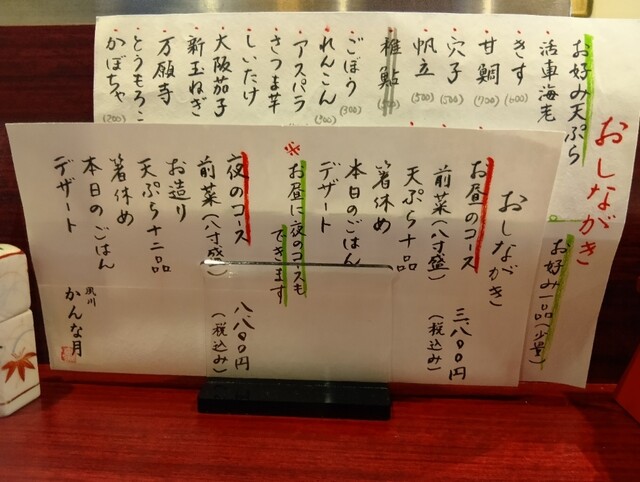 おしながき
お好み天ぷら
活車海老
きす
(600)
甘鯛
(700)
穴子
(500)
帆立
(500)
稚鮎
(500)
ごぼう
(300)
れんこん
(300)
アスパラ
さつま芋
しいたけ
大阪茄子
新玉ねぎ
万願寺
とうもろこ
かぼちゃ
(200)
お好み一品(少量)
おしながき
お昼のコース
三、八〇〇円
(税込み)
前菜(八寸盛)
天ぷら十品
箸休め
本日のごはん
デザート
※お昼に夜のコースも
できます
夜のコース
八、八〇〇円
(税込み)
前菜(八寸盛)
お造り
天ぷら十二品
箸休め
本日のごはん
デザート
夙川
かんな月